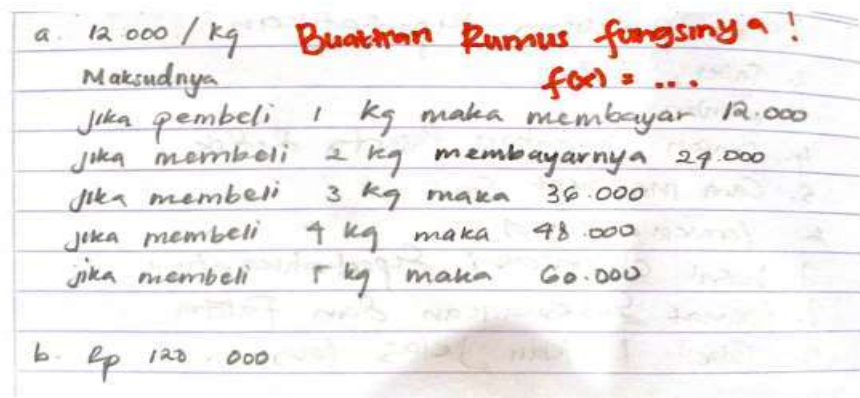 a. 12.000 / kg Buatkan Rumus fungsinya !
Maksudnya f(x) = ...
jika pembeli 1 kg maka membayar 12.000
jika membeli 2 kg membayarnya 24.000
jika membeli 3 kg maka 36.000
jika membeli 4 kg maka 48.000
jika membeli 5 kg maka 60.000
b. Rp 120 000